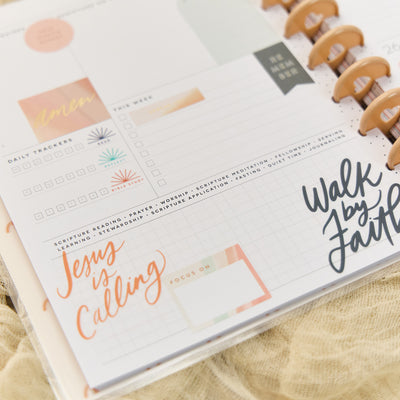 amen
RE
MEM
BER
THIS WEEK
DAILY TRACKERS
READ
BIBLE STUDY
SCRIPTURE READING • PRAYER • WORSHIP • SCRIPTURE MEDITATION • FELLOWSHIP • SERVING
LEARNING • STEWARDSHIP • SCRIPTURE APPLICATION • FASTING • QUIET TIME • JOURNALING
Walk
by
Faith
Jesus
is
Calling
FOCUS ON
26